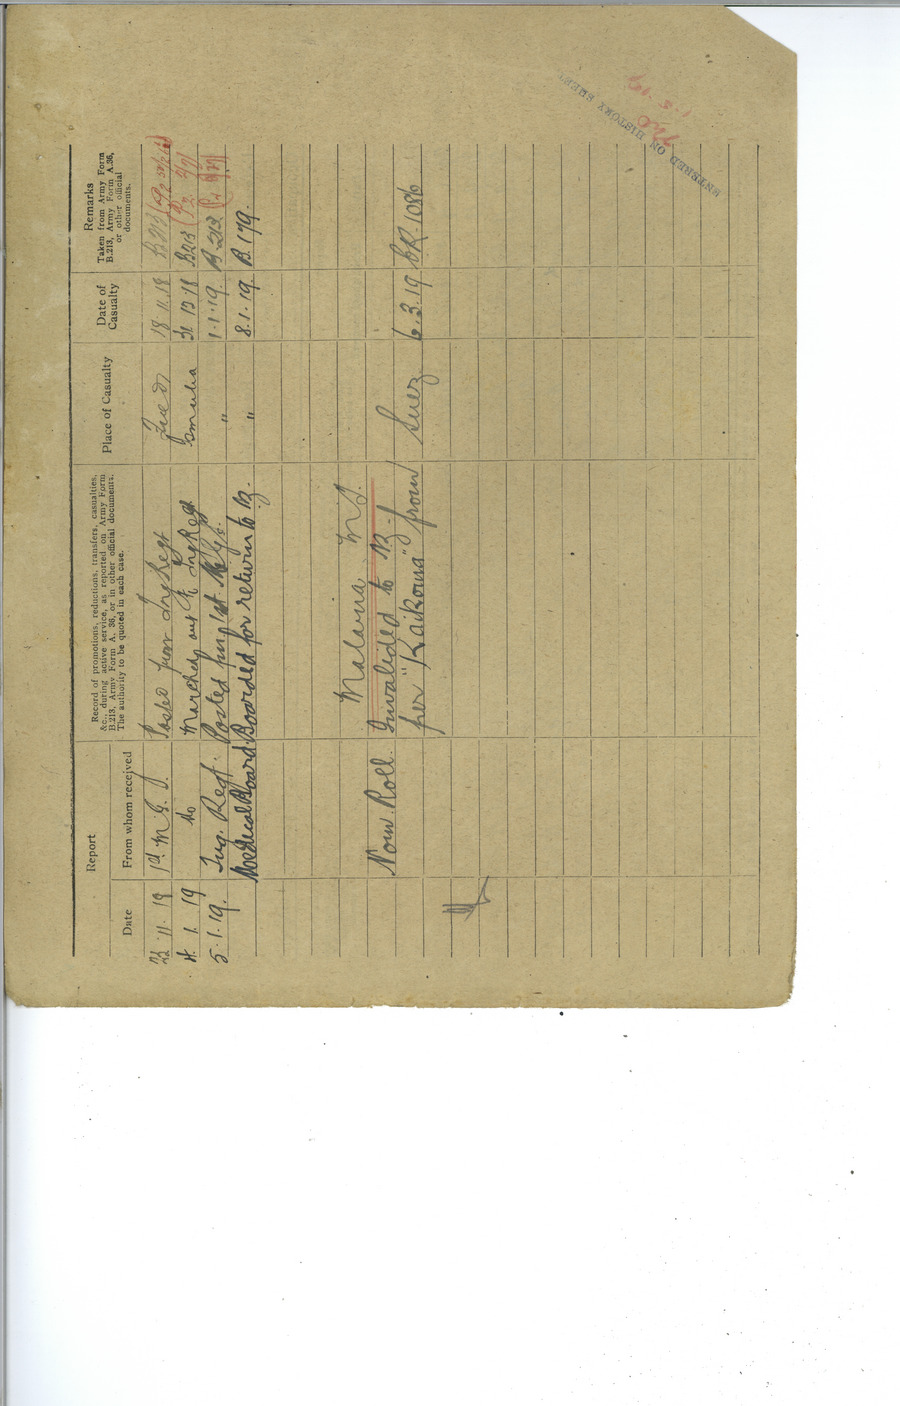 Report
Date
From whom received
Record of promotions, reductions, transfers, casualties,
&c., during active service, as reported on Army Form
B.213, Army Form A. 36, or in other official documents.
The authority to be quoted in each case.
Place of Casualty
Date of
Casualty
Remarks
Taken from Army Form
B.213, Army Form A.36,
or other official
documents.
22 11 18 1st M.G.S. Posted from Trg Regt 18 11 18 B213
4. 1. 19 do Marched out to Trg Regt Ismailia 31 12 18 B213
5.1.19. Trg. Regt. Posted from 1st M.G. " 1.1.19. B.213
Medical Board Boarded for return to N.Z. " 8.1.19. B.179.
Malaria M.S.
Nom. Roll. Invalided to N.Z.
per "Kaikoura" from Suez 6.3.19 CR.1086
ENTERED ON HISTORY SHEET